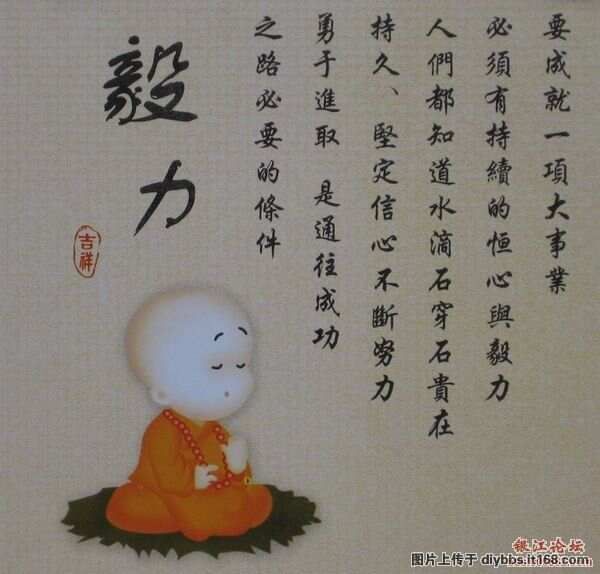 要成就一項大事業
必須有持續的恒心與毅力
人們都知道水滴石穿石貴在
持久、堅定信心不斷努力
勇于進取 是通往成功
之路必要的條件
毅力
吉祥
银江论坛
图片上传于 diybbs.it168.com